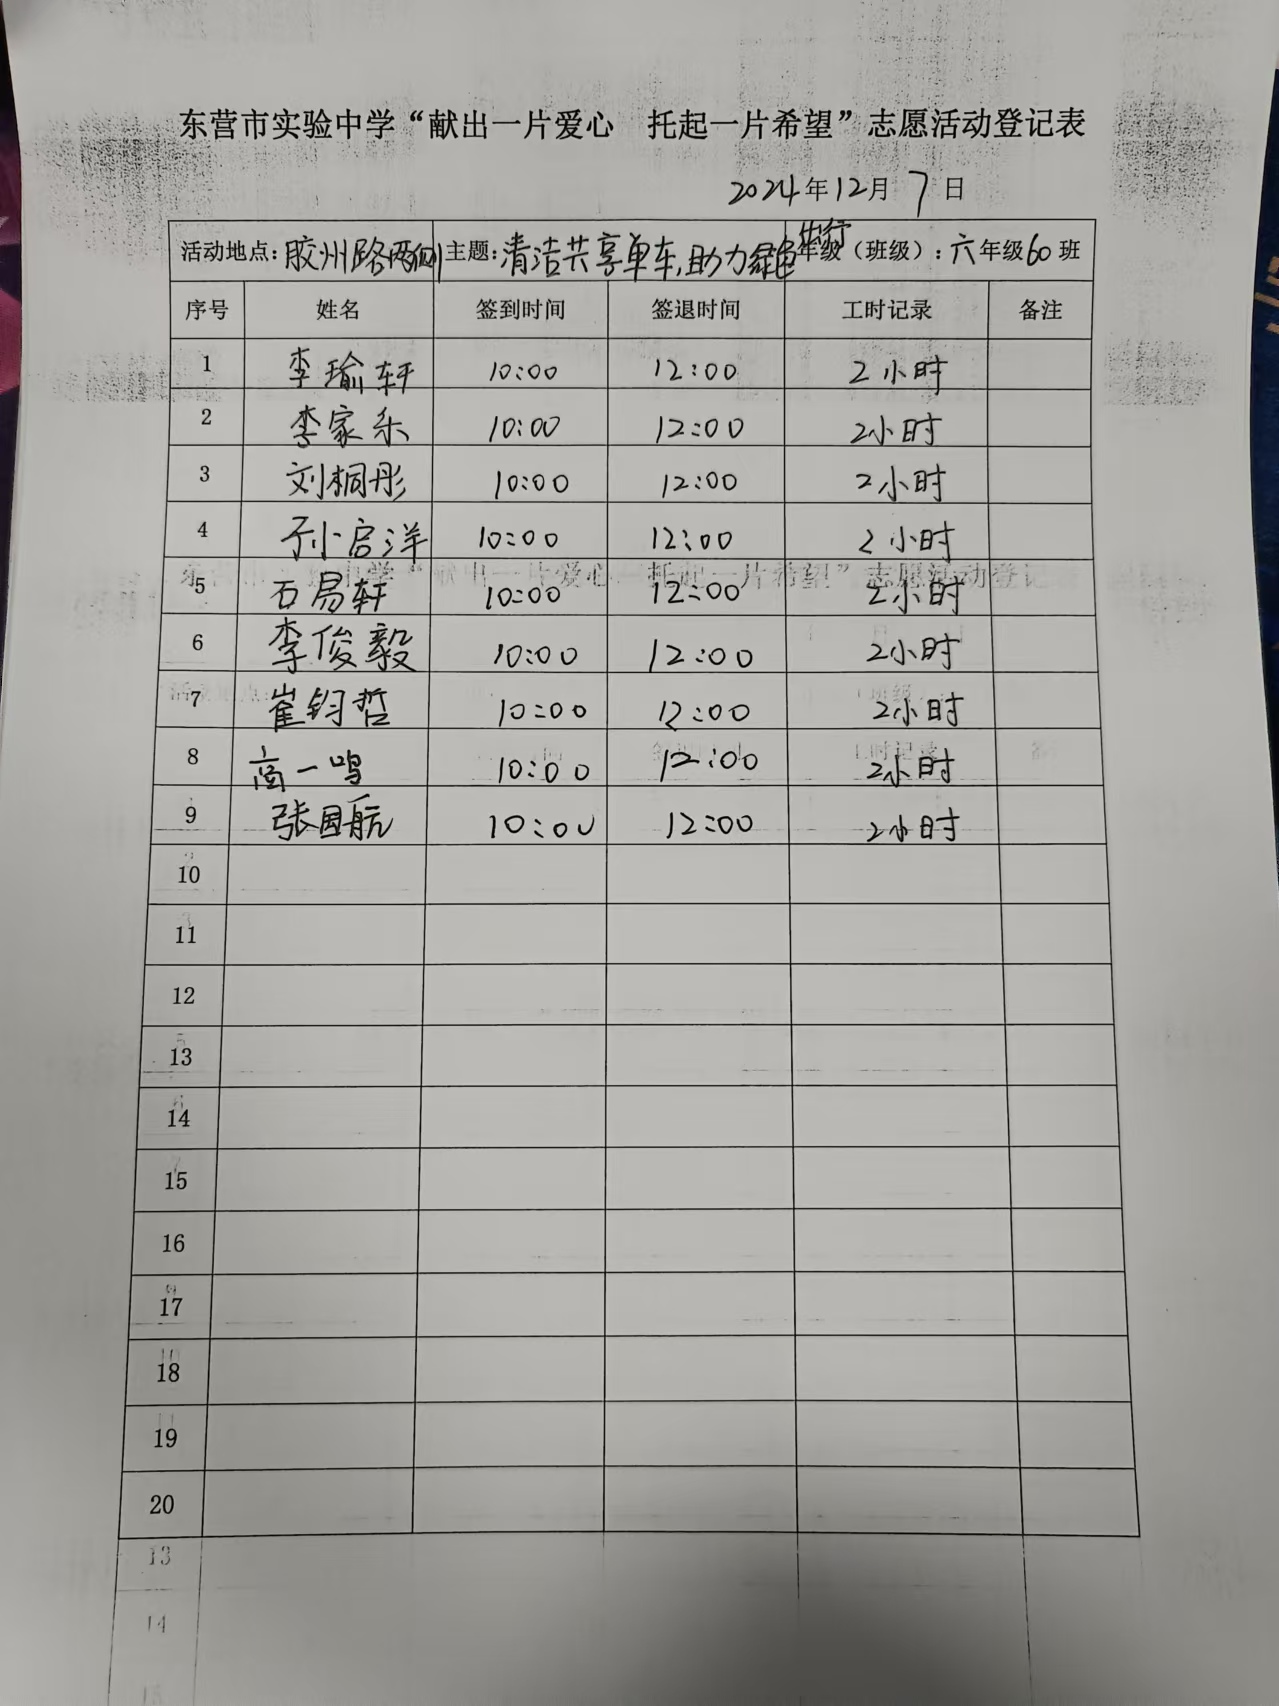 东营市实验中学“献出一片爱心 托起一片希望”志愿活动登记表
2024年12月7日
活动地点：胶州路两侧 主题：清洁共享单车，助力绿色出行 年级（班级）：六年级60班
序号 姓名 签到时间 签退时间 工时记录 备注
1 李瑜轩 10:00 12:00 2小时
2 李家乐 10:00 12:00 2小时
3 刘桐彤 10:00 12:00 2小时
4 孙启洋 10:00 12:00 2小时
5 石易轩 10:00 12:00 2小时
6 李俊毅 10:00 12:00 2小时
7 崔钧哲 10:00 12:00 2小时
8 商一鸣 10:00 12:00 2小时
9 张国航 10:00 12:00 2小时
10
11
12
13
14
15
16
17
18
19
20
13
14
15